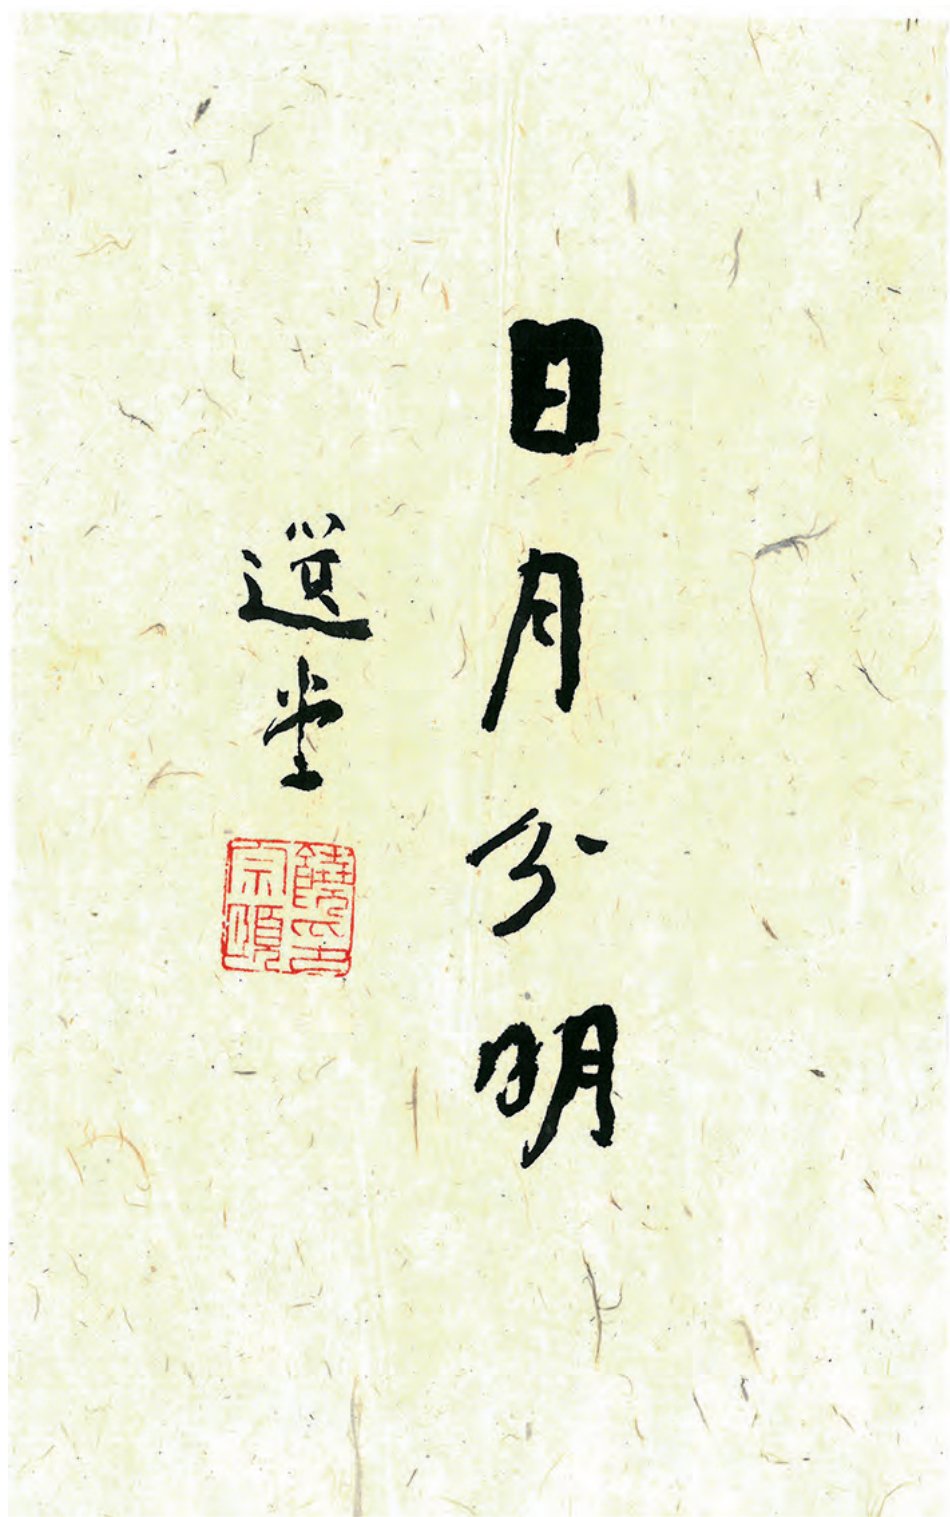 日月分明
選堂
饒宗頤印